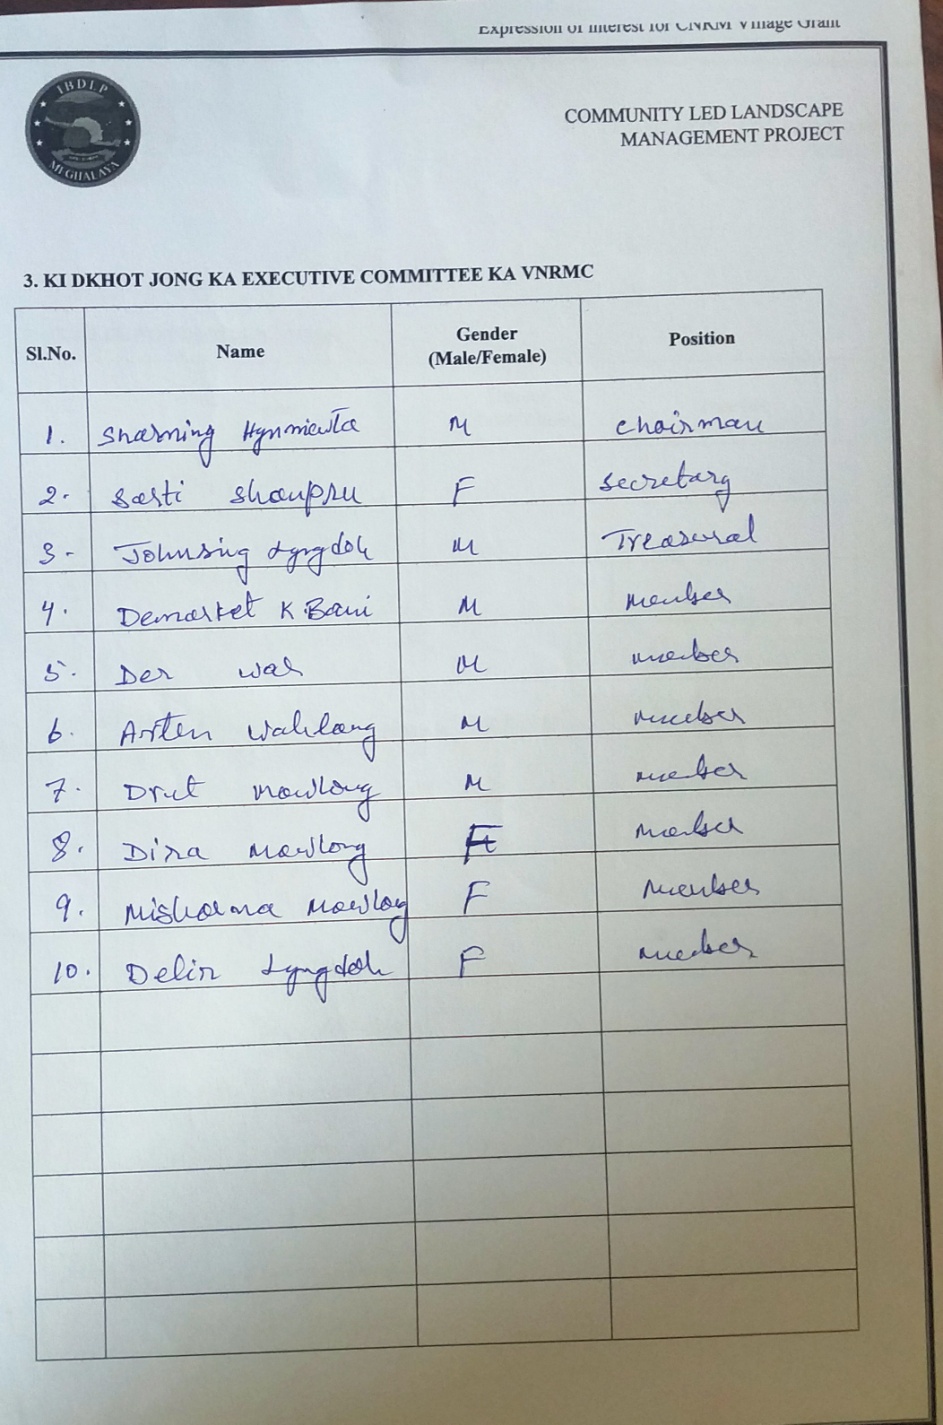 Expression of Interest for CNRM Village Grant
IBDLP
MEGHALAYA
COMMUNITY LED LANDSCAPE
MANAGEMENT PROJECT
3. KI DKHOT JONG KA EXECUTIVE COMMITTEE KA VNRMC
Sl.No. Name Gender (Male/Female) Position
1. Sharning Hynniewta M chairman
2. Sarti Shanpru F secretary
3. Johnsing Lyngdoh M Treasural
4. Demarket K Bani M member
5. Der wah M member
6. Arten Wahlang M member
7. Drut mawlong M member
8. Dira Mawlong F member
9. Misharna Mawlog F member
10. Delin Lyngdoh F member